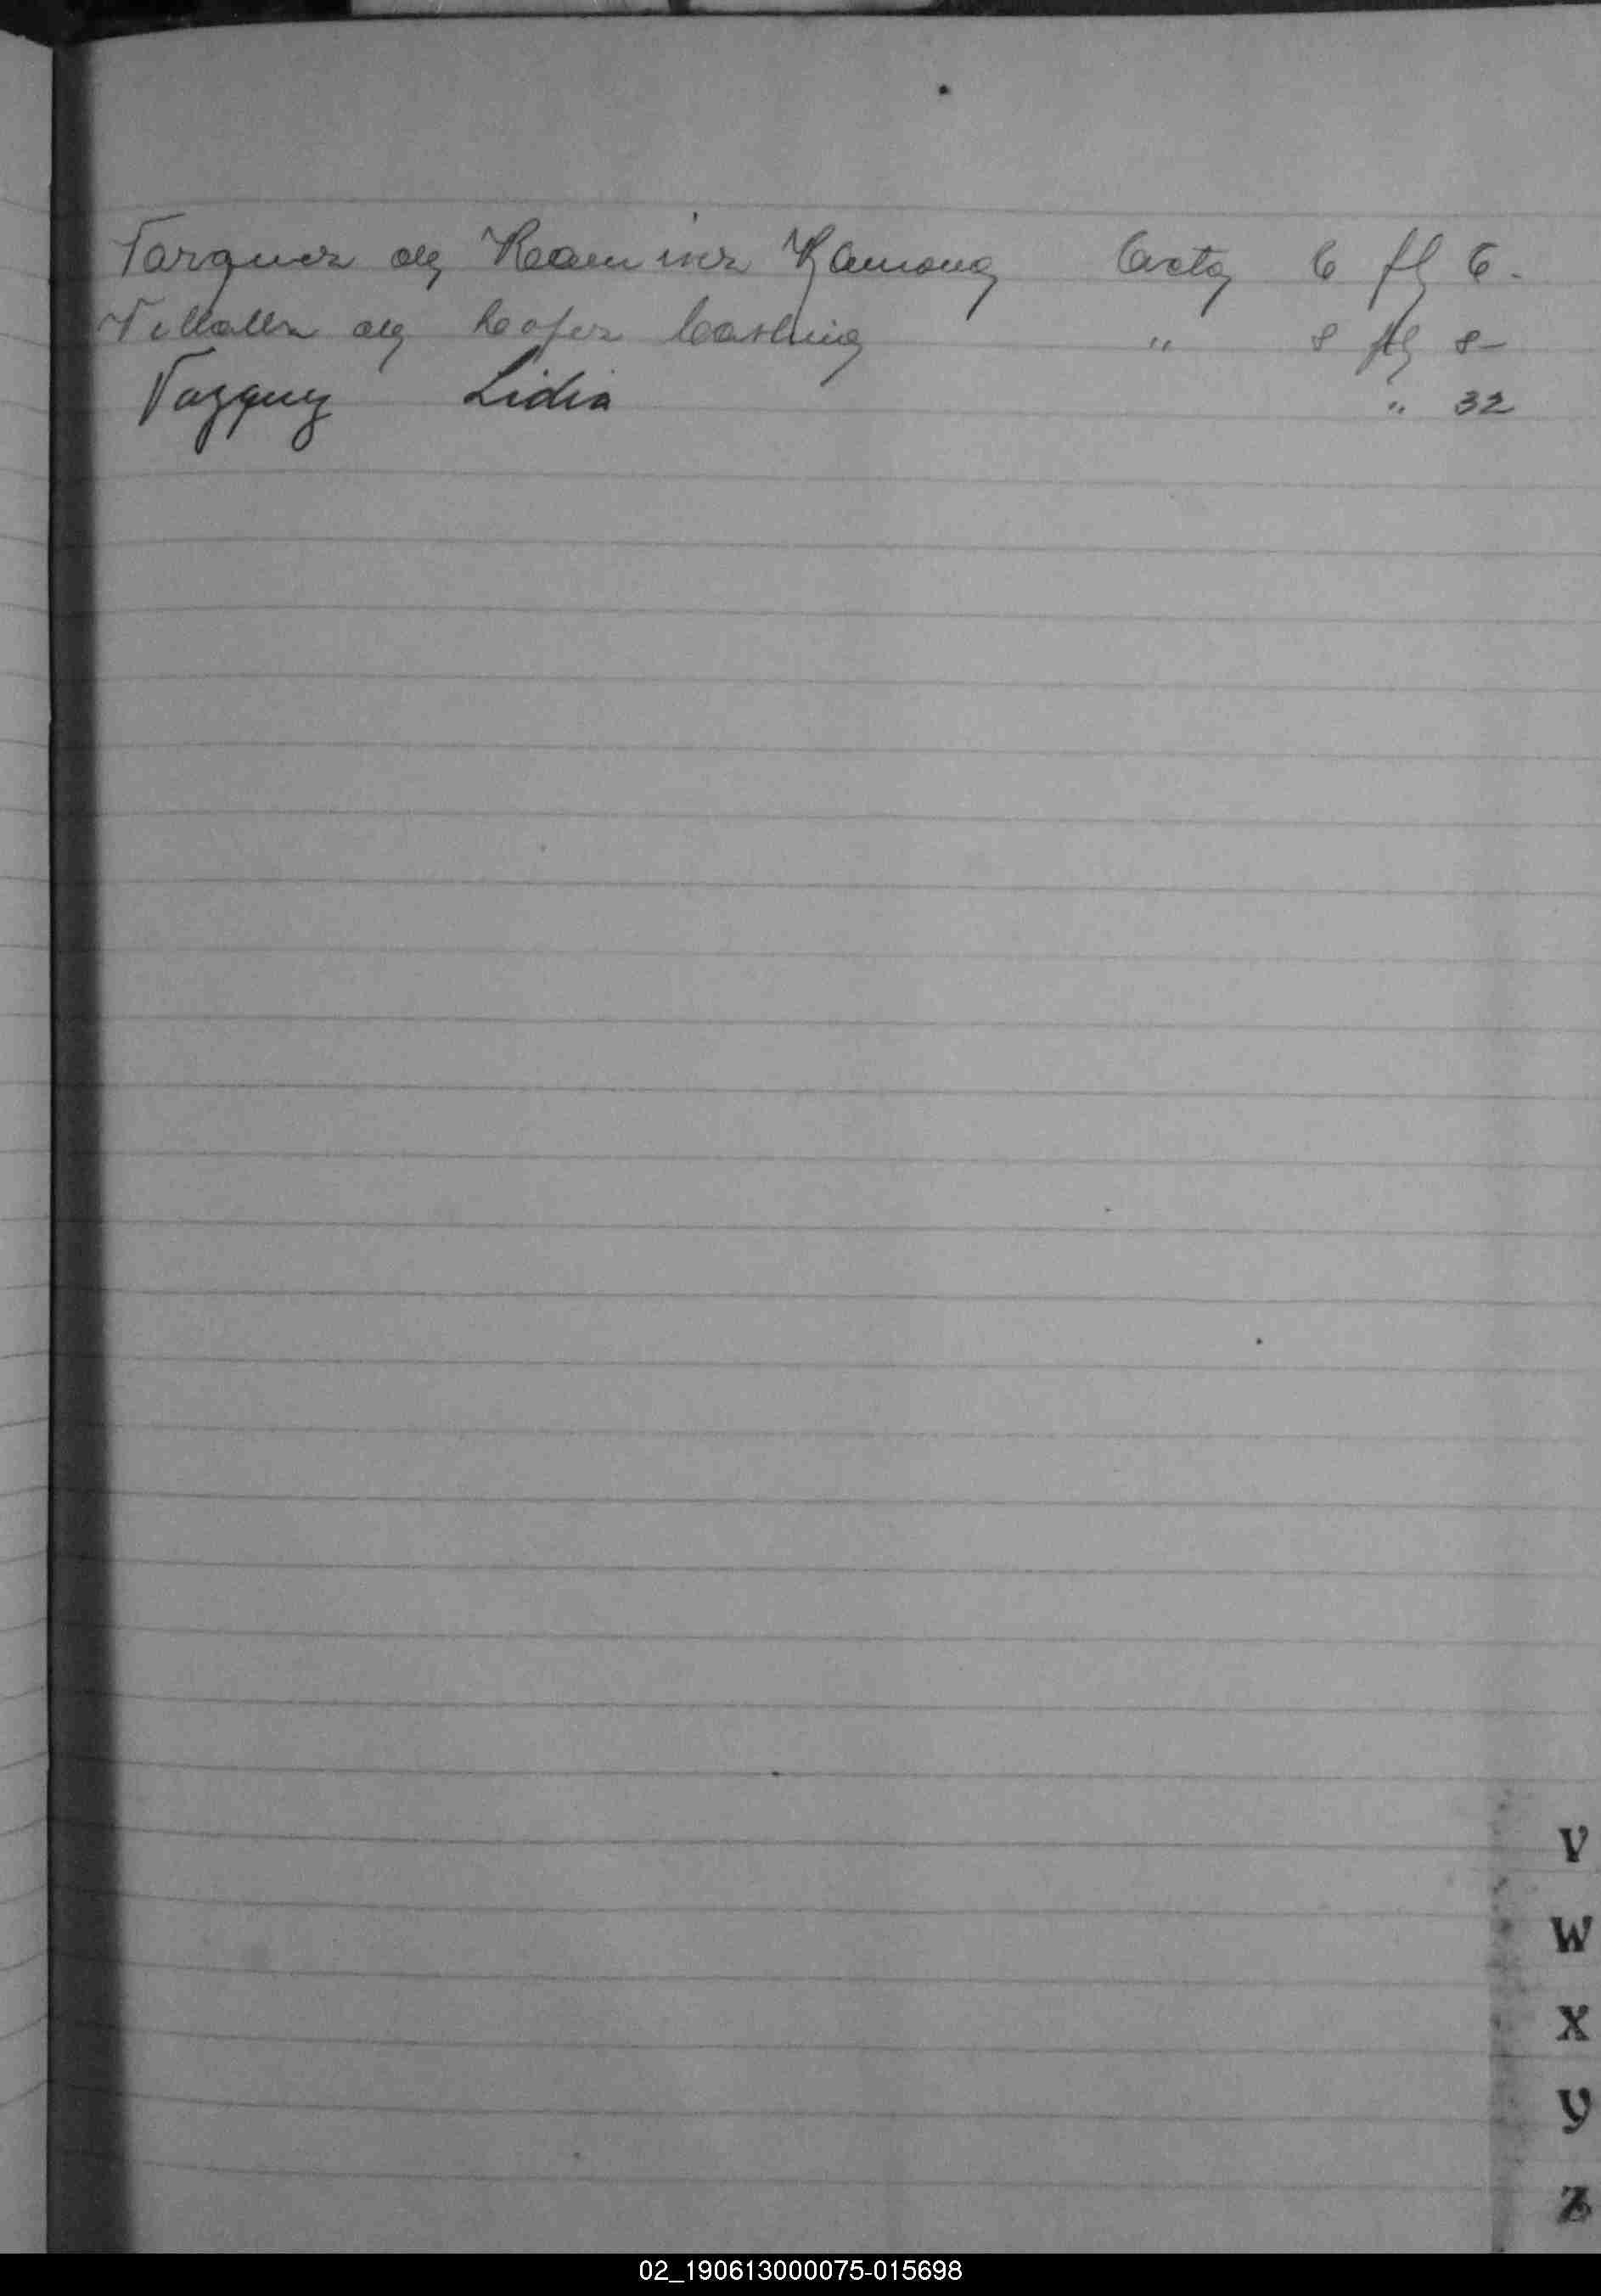 Vazquez de Ramirez Ramona Acta 6 fl 6.
Villalba de " 8 fl 8-
Vazquez Lidia " 32
V
W
X
Y
Z
02_190613000075-015698